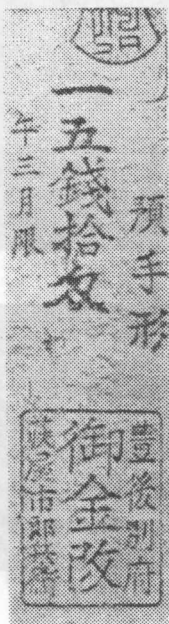 預手形
一五錢拾匁
午三月限
豊後別府
御金改
屋市郎兵衛